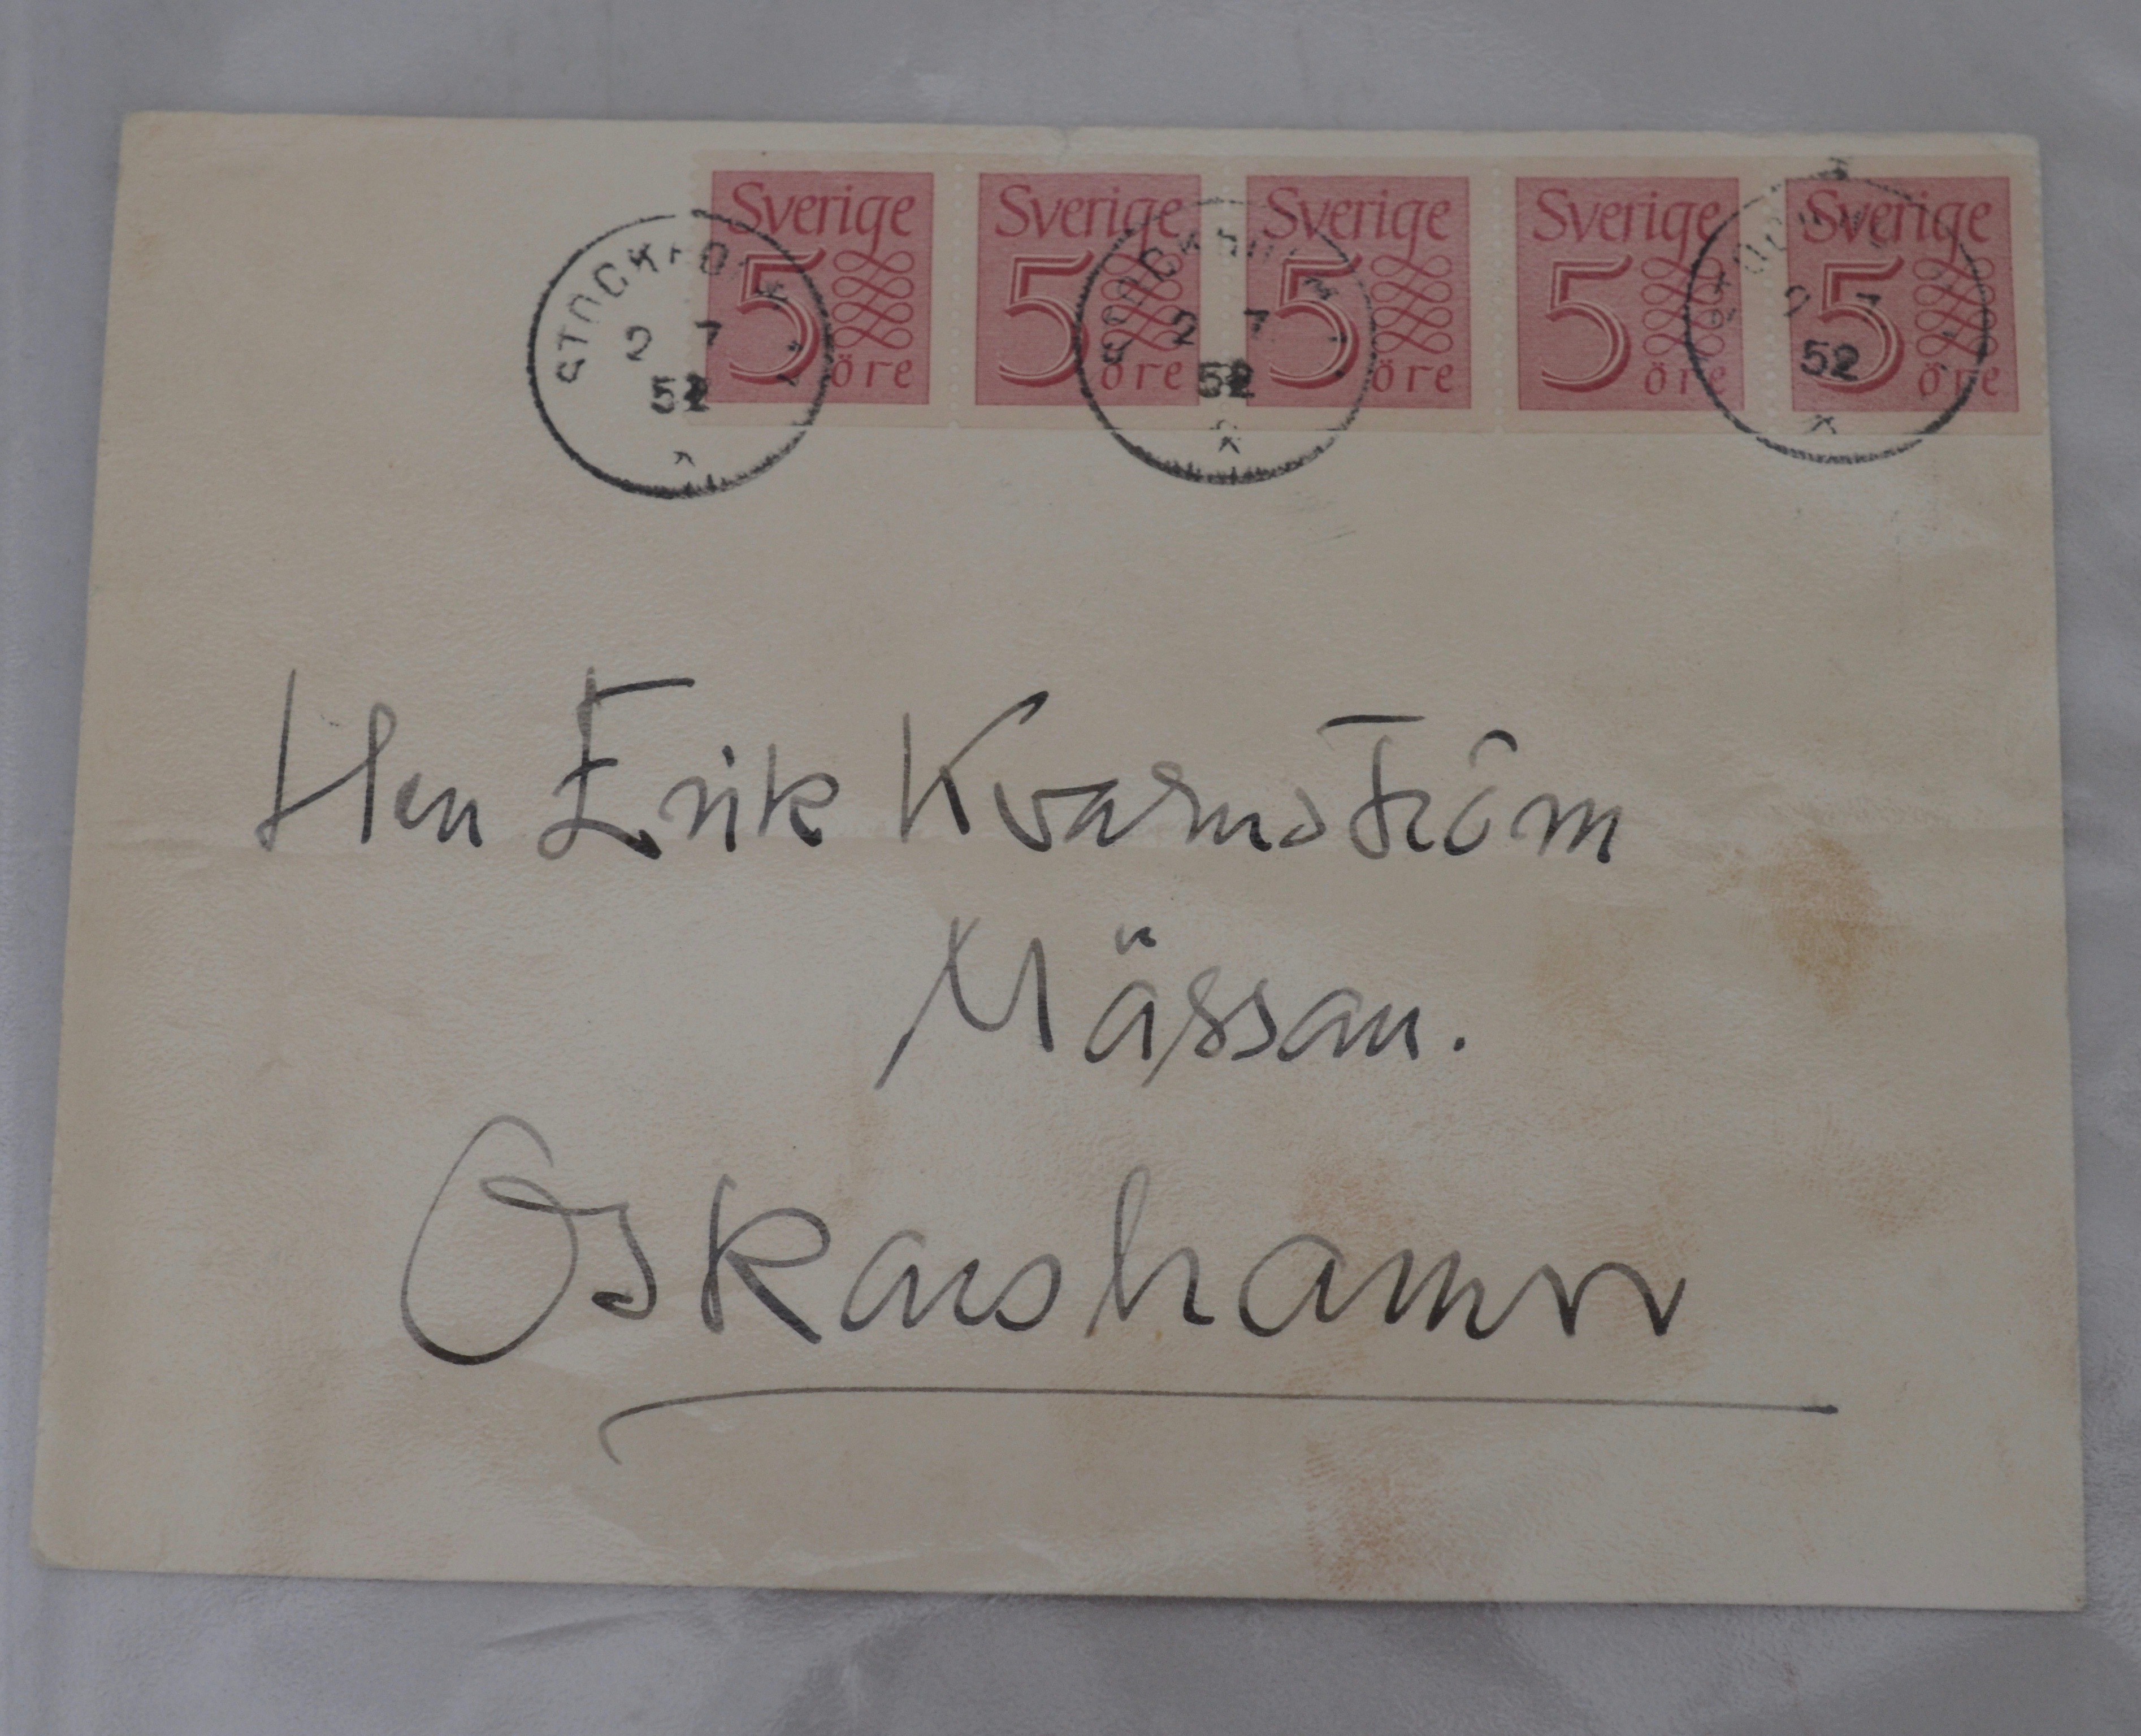 Sverige Sverige Sverige Sverige Sverige
5 öre 5 öre 5 öre 5 öre 5 öre
STOCKHOLM STOCKHOLM STOCKHOLM
2 7 2 7 2 7
52 52 52
Herr Erik Kvarnström
Mässan.
Oskarshamn